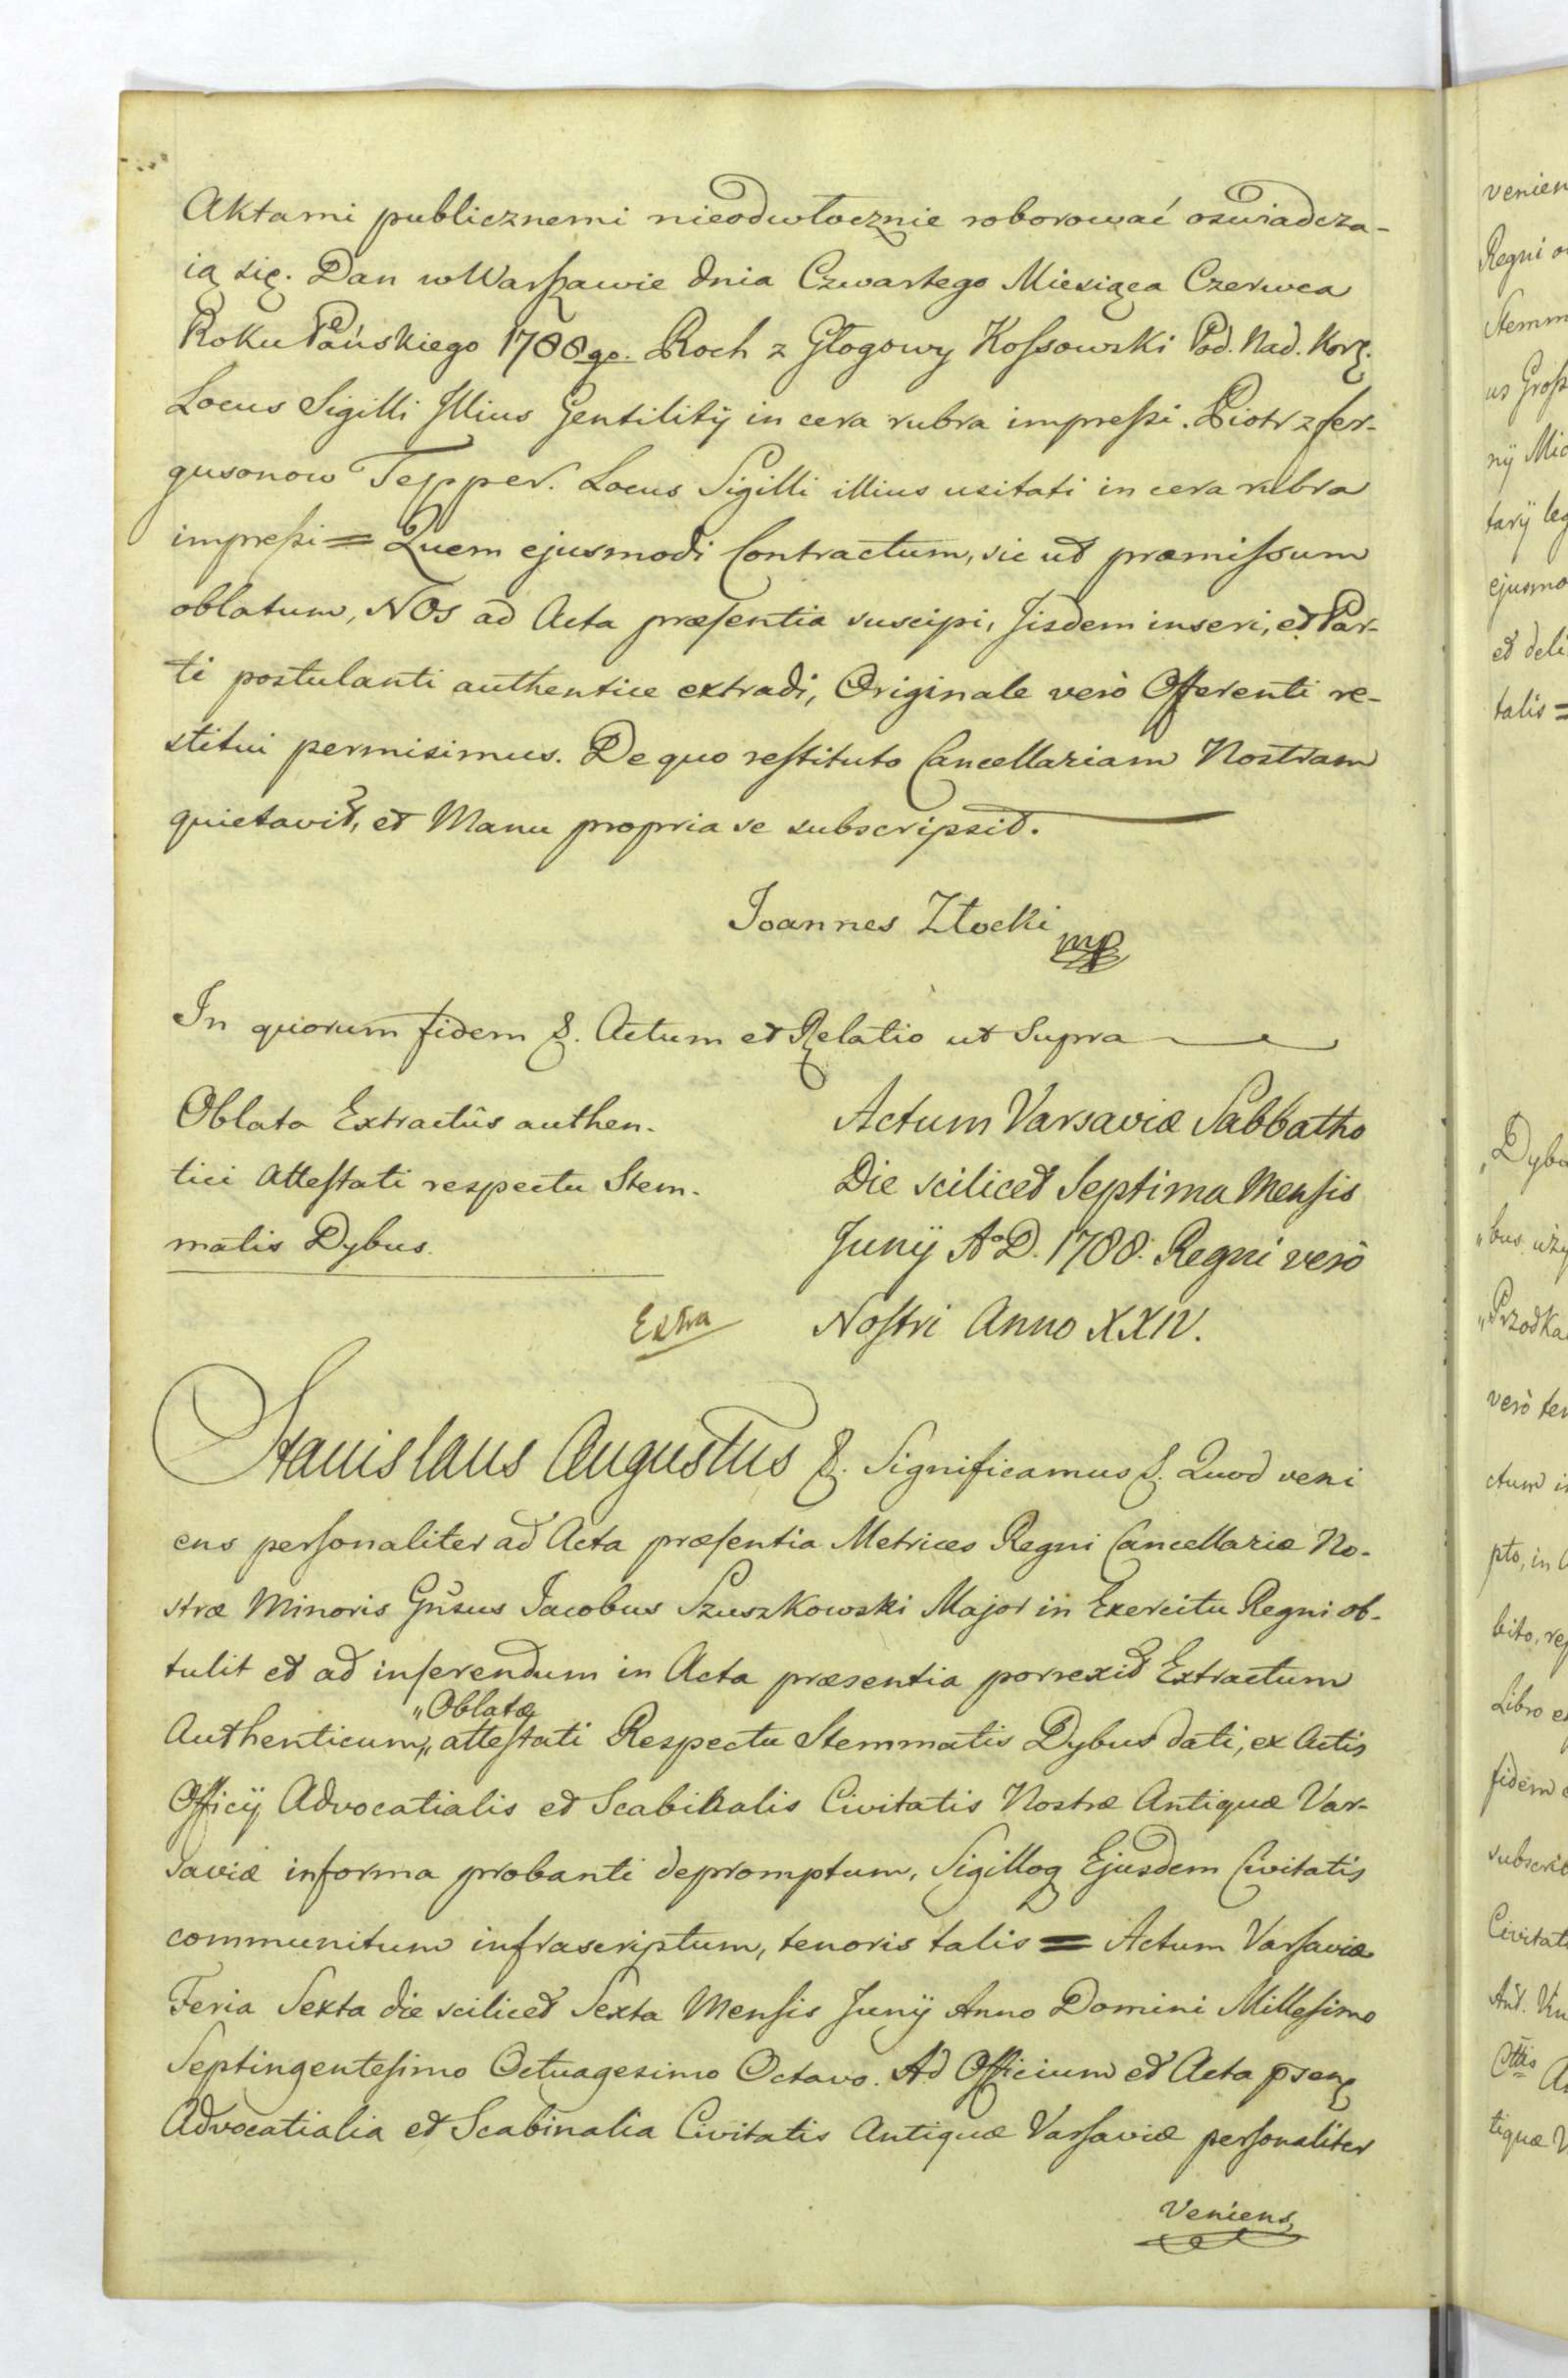 Aktami publicznemi nieodwłocznie roborować oswiadcza-
ią się. Dan w Warszawie dnia Czwartego Miesiąca Czerwca
Roku Pańskiego 1788go. Roch z Głogowy Kossowski Pod. Nad. Korz.
Locus Sigilli Illius Gentilitij in cera rubra impressi. Piotr z fer-
gusonow Tepper. Locus Sigilli illius usitati in cera rubra
impressi = Quem ejusmodi Contractum, sic ut præmissum
oblatum, NOs ad Acta præsentia suscipi, Jisdem inseri, et Par-
ti postulanti authentice extradi, Originale verò Offerenti re-
stitui permisimus. De quo restituto Cancellariam Nostram
quietavit, et Manu propria se subscripsit.
Joannes Złocki mp
In quorum fidem &. Actum et Relatio ut Supra
Oblata Extractûs authen-
tici Attestati respectu Stem-
matis Dybus.
Actum Varsaviæ Sabbatho
Die scilicet Septima Mensis
Junij A° D. 1788. Regni verò
Extra
Nostri Anno XXIV.
Stanislaus Augustus &. Significamus &. Quod veni
ens personaliter ad Acta præsentia Metrices Regni Cancellariæ No-
stræ Minoris Gñsus Jacobus Szuszkowski Major in Exercitu Regni ob-
tulit et ad inserendum in Acta præsentia porrexit Extractum
"Oblatæ
Authenticum,, attestati Respectu Stemmatis Dybus dati, ex Actis
Officij Advocatialis et Scabinalis Civitatis Nostræ Antiquæ Var-
saviæ in forma probanti depromptum, Sigilloq Ejusdem Civitatis
communitum infrascriptum, tenoris talis = Actum Varsaviæ
Feria Sexta die scilicet Sexta Mensis Junij Anno Domini Millesimo
Septingentesimo Octuagesimo Octavo. Ad Officium et Acta p̄senz
Advocatialia et Scabinalia Civitatis Antiquæ Varsaviæ personaliter
Veniens,